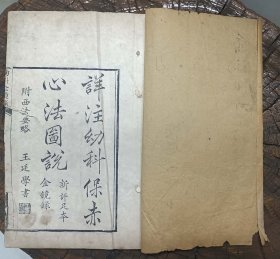 詳注幼科保赤
心法圖說
新訂足本
金鏡錄
附西法要略
王廷學書